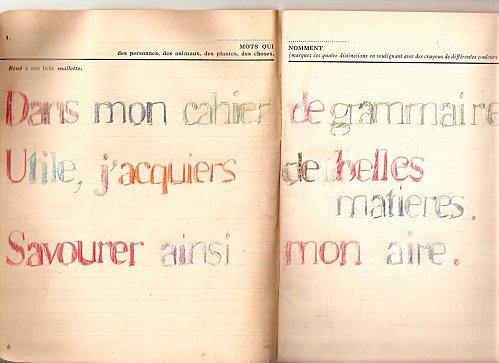 1.
MOTS QUI
des personnes, des animaux, des plantes, des choses.
René a une belle mallette.
Dans mon cahier
Utile, j'acquiers
Savourer ainsi
6
NOMMENT
(marquez ces quatre distinctions en soulignant avec des crayons de différentes couleurs
de grammaire
de belles
matieres.
mon aire.